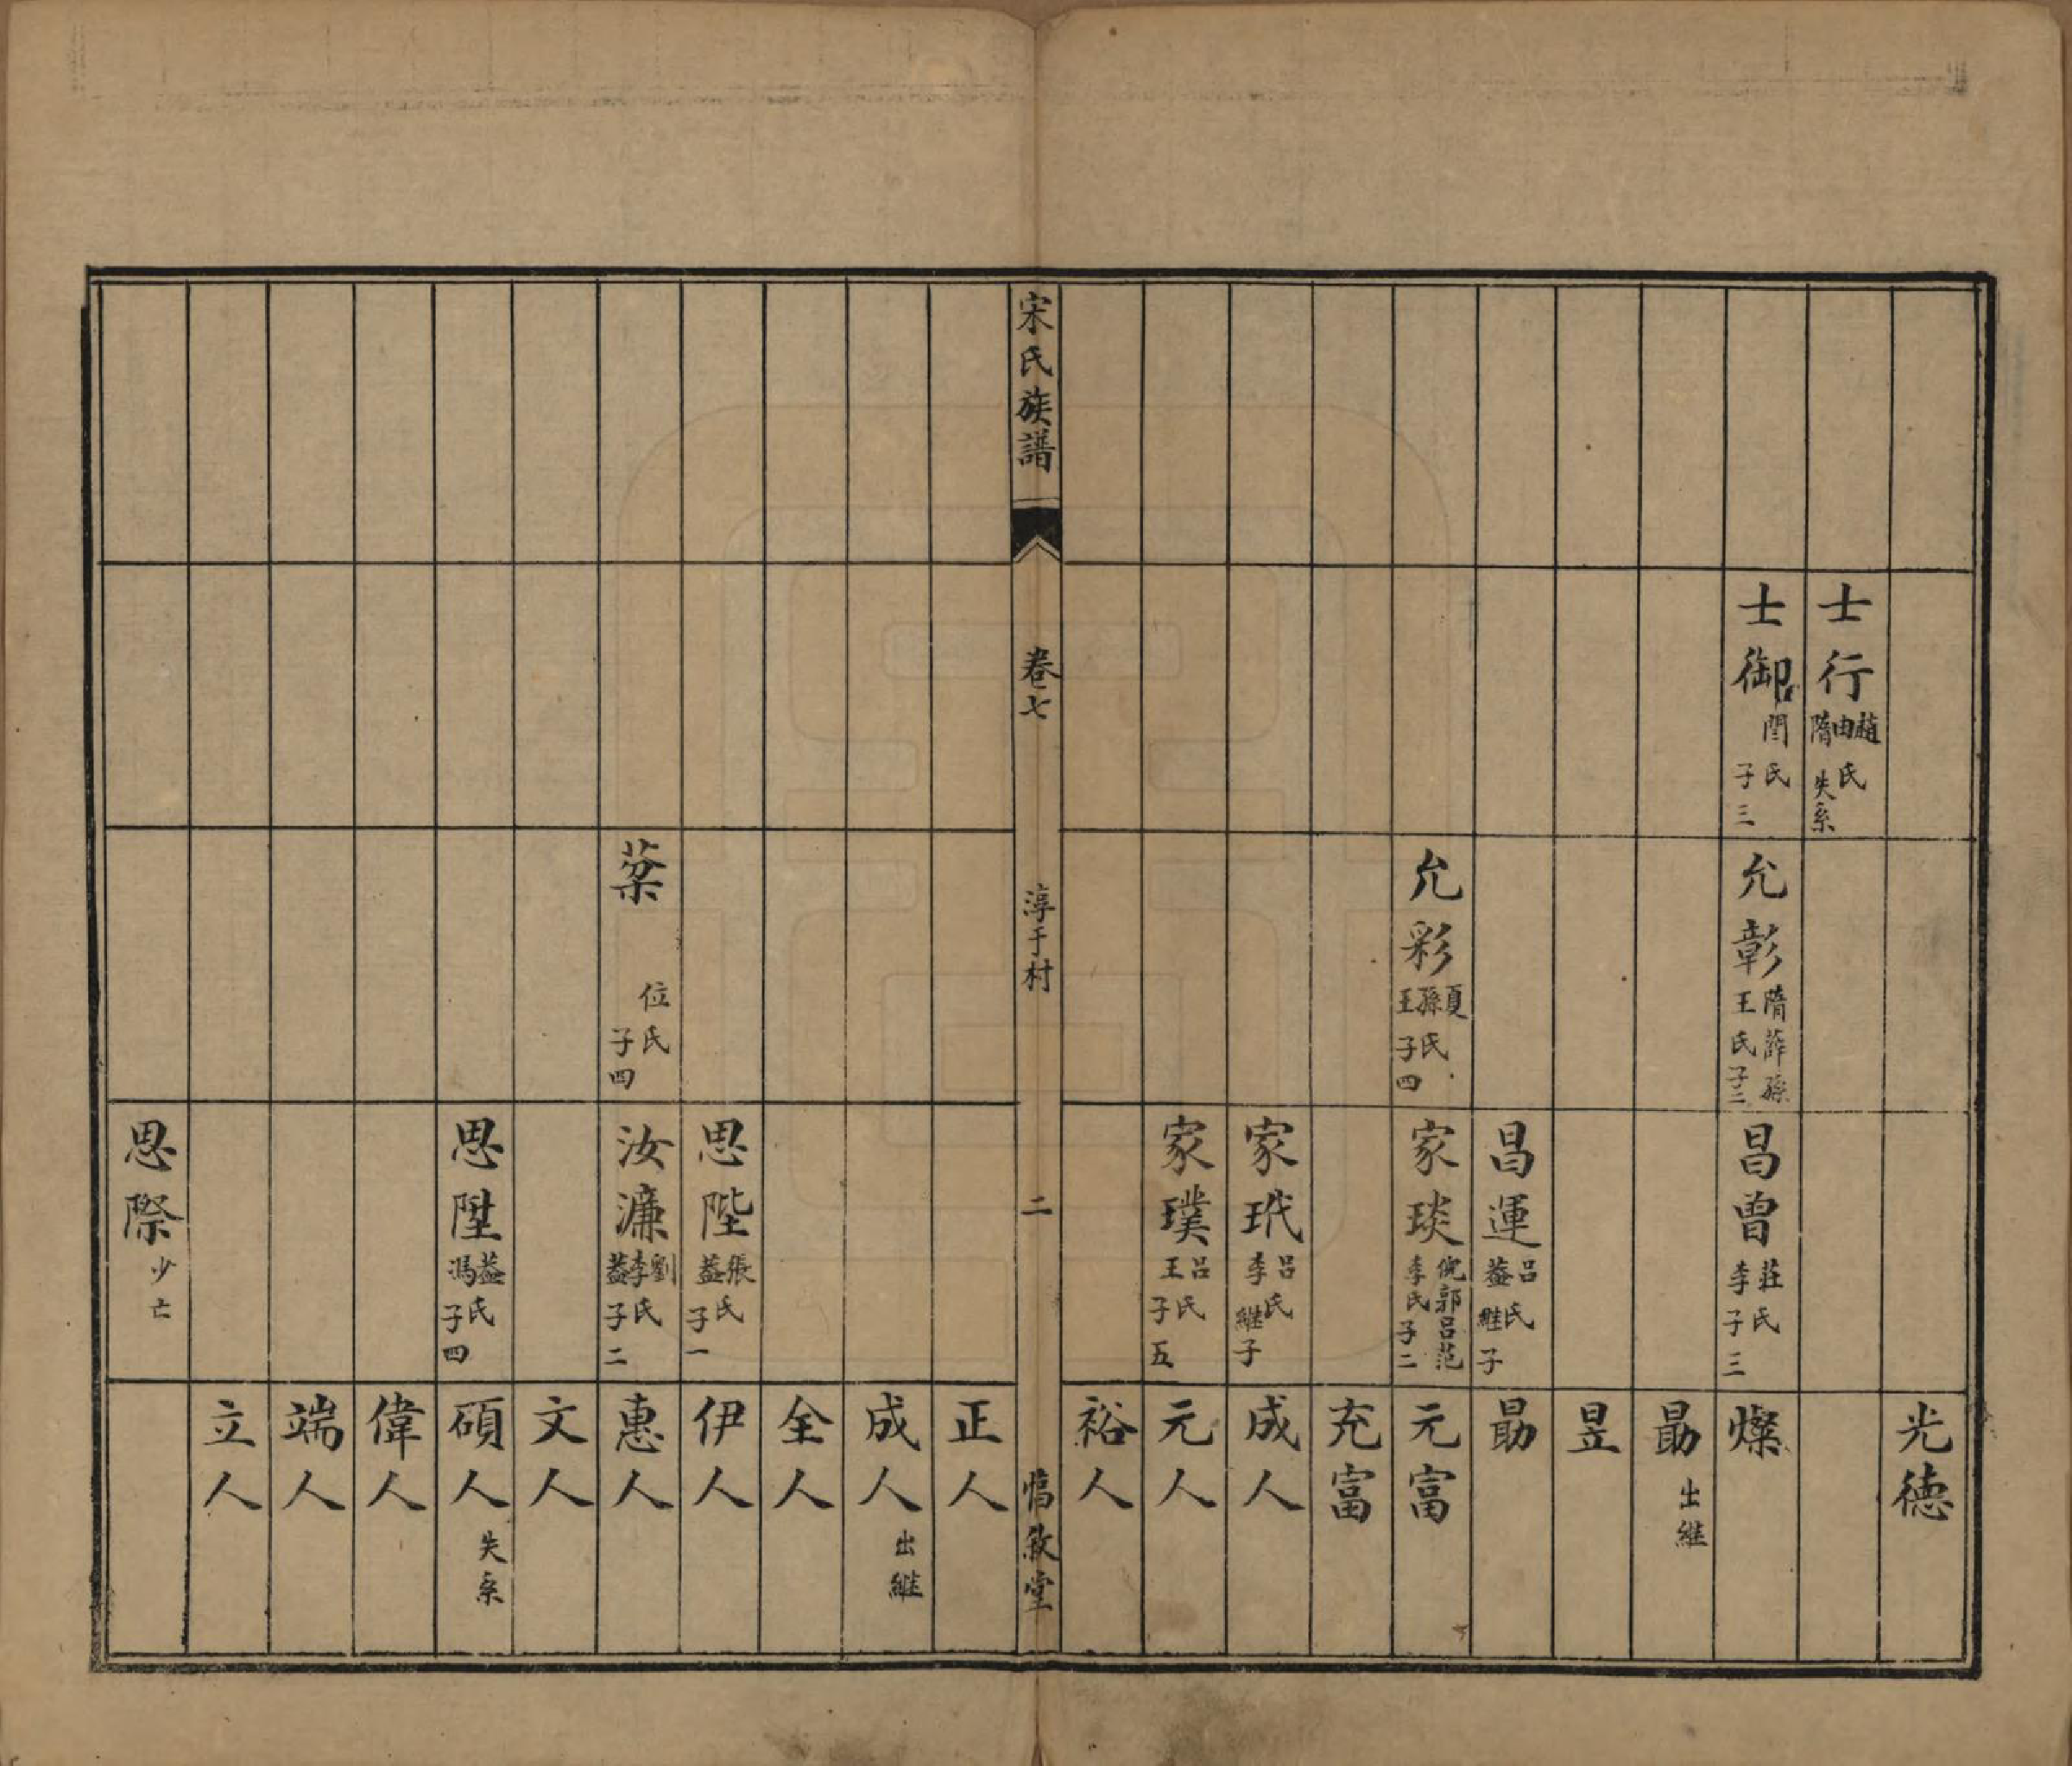 光德
士行 趙由隋氏 失系
士御 閆氏 子三
允彰 隋薛孫王氏 子二
昌曾 莊李氏 子三
燦
勗 出繼
昱
昌運 呂益氏 繼子
勗
允彩 夏孫王氏 子四
家琰 倪郭呂范李氏 子二
元富
充富
家玳 呂李氏 繼子
成人
家璞 呂王氏 子五
元人
裕人
宋氏族譜 卷七 淳于村 二 惇敘堂
正人
成人 出繼
全人
思陛 張益氏 子一
伊人
棻 位氏 子四
汝濂 劉李益氏 子二
惠人
文人
思陞 益馮氏 子四
碩人 失系
偉人
端人
立人
思際 少亡